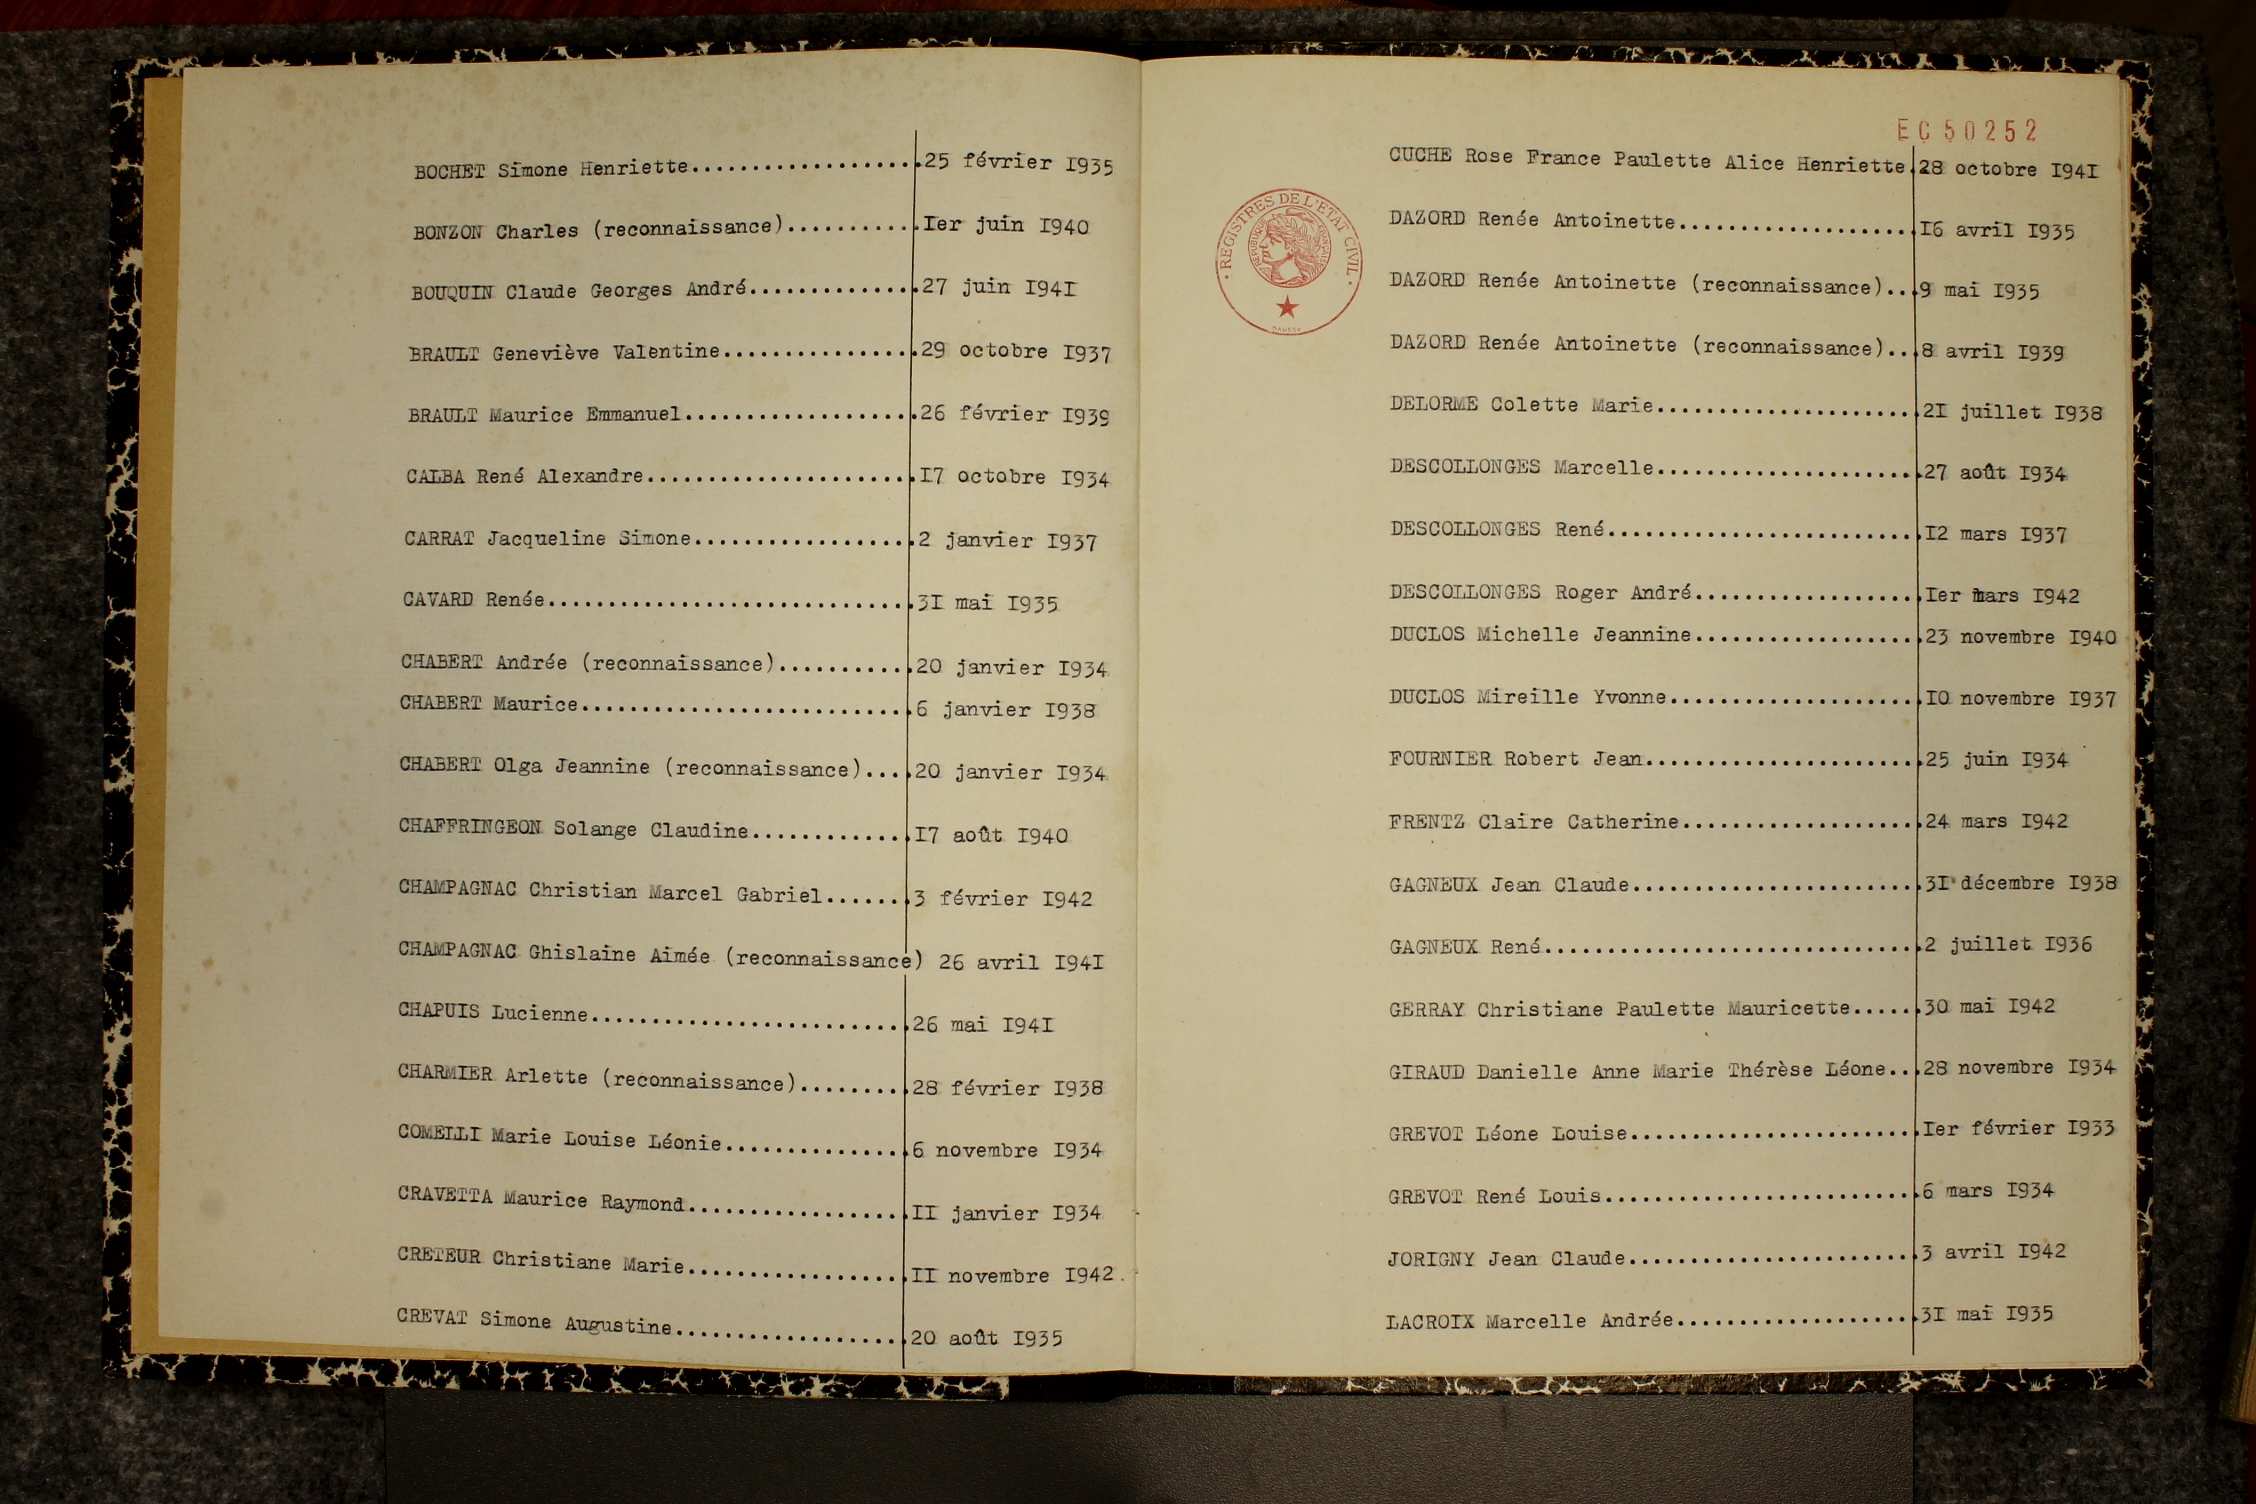 BOCHET Simone Henriette...................25 février I935
BONZON Charles (reconnaissance)...........Ier juin I940
BOUQUIN Claude Georges André..............27 juin I94I
BRAULT Geneviève Valentine................29 octobre I937
BRAULT Maurice Emmanuel...................26 février I939
CALBA René Alexandre......................I7 octobre I934
CARRAT Jacqueline Simone..................2 janvier I937
CAVARD Renée..............................3I mai I935
CHABERT Andrée (reconnaissance)...........20 janvier I934
CHABERT Maurice...........................6 janvier I938
CHABERT Olga Jeannine (reconnaissance)....20 janvier I934
CHAFFRINGEON Solange Claudine.............I7 août I940
CHAMPAGNAC Christian Marcel Gabriel.......3 février I942
CHAMPAGNAC Ghislaine Aimée (reconnaissance) 26 avril I94I
CHAPUIS Lucienne..........................26 mai I94I
CHARMIER Arlette (reconnaissance).........28 février I938
COMELLI Marie Louise Léonie...............6 novembre I934
CRAVETTA Maurice Raymond..................II janvier I934
CRETEUR Christiane Marie..................II novembre I942.
CREVAT Simone Augustine...................20 août I935
EC 50252
REGISTRES DE L'ETAT CIVIL
REPUBLIQUE FRANÇAISE
CUCHE Rose France Paulette Alice Henriette.28 octobre I94I
DAZORD Renée Antoinette....................I6 avril I935
DAZORD Renée Antoinette (reconnaissance)...9 mai I935
DAZORD Renée Antoinette (reconnaissance)...8 avril I939
DELORME Colette Marie......................2I juillet I938
DESCOLLONGES Marcelle......................27 août I934
DESCOLLONGES René..........................I2 mars I937
DESCOLLONGES Roger André...................Ier mars I942
DUCLOS Michelle Jeannine...................23 novembre I940
DUCLOS Mireille Yvonne.....................I0 novembre I937
FOURNIER Robert Jean.......................25 juin I934
FRENTZ Claire Catherine....................24 mars I942
GAGNEUX Jean Claude........................3I décembre I938
GAGNEUX René...............................2 juillet I936
GERRAY Christiane Paulette Mauricette......30 mai I942
GIRAUD Danielle Anne Marie Thérèse Léone...28 novembre I934
GREVOT Léone Louise........................Ier février I933
GREVOT René Louis..........................6 mars I934
JORIGNY Jean Claude........................3 avril I942
LACROIX Marcelle Andrée....................3I mai I935